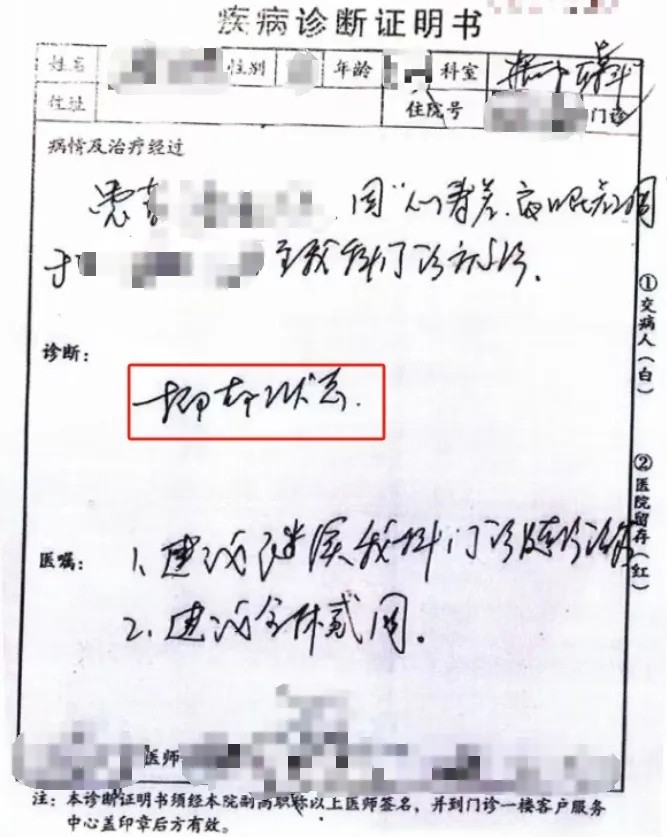 疾病诊断证明书
姓名 性别 年龄 科室
住址 住院号 门诊
病情及治疗经过
患者 因"心情差、夜眠差2周"
于 至我科门诊就诊。
诊断:
抑郁状态.
医嘱: 1、建议继续我科门诊随诊治疗
2、建议全休贰周。
①交病人(白)
②医院留存(红)
医师
注:本诊断证明书须经本院副高职称以上医师签名,并到门诊一楼客户服务
中心盖印章后方有效。